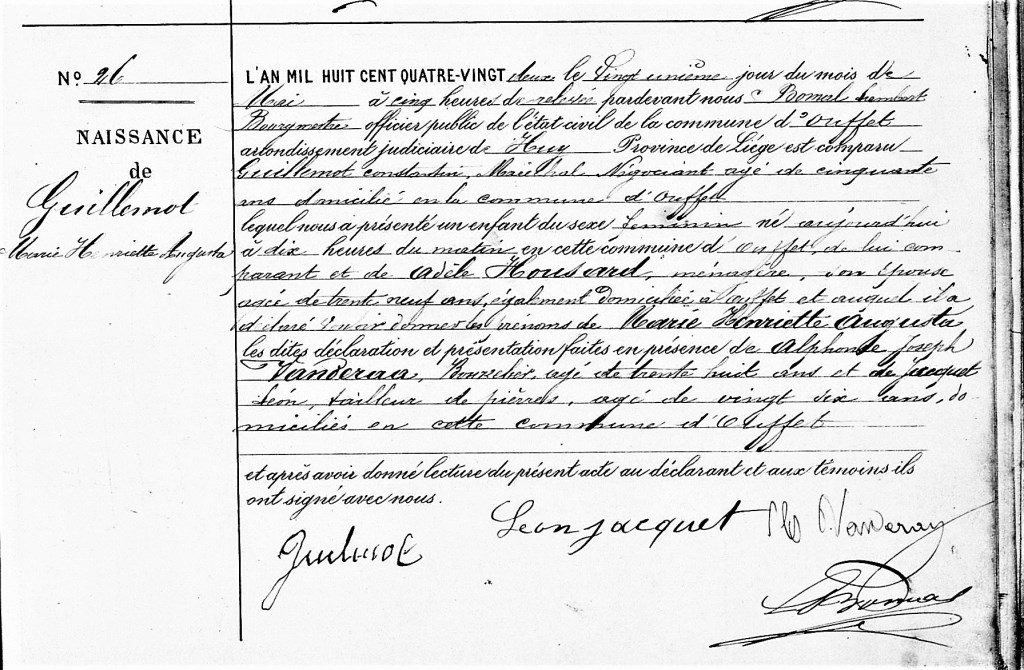 N° 26
NAISSANCE
de
Guillemot
Marie Henriette Augusta
L'AN MIL HUIT CENT QUATRE-VINGT deux le vingt unième jour du mois de
Mai à cinq heures de relevée pardevant nous Bomal Lambert
Bourgmestre officier public de l'état civil de la commune d'Ouffet
arrondissement judiciaire de Huy Province de Liége est comparu
Guillemot Constantin, Maréchal Négociant agé de cinquante
ans domicilié en la commune d'Ouffet
lequel nous a présenté un enfant du sexe féminin né aujourd'hui
à dix heures du matin en cette commune d'Ouffet, de lui com-
parant et de Adèle Housard, ménagère, son épouse
agée de trente neuf ans, également domiciliée à Ouffet et auquel il a
déclaré vouloir donner les prénoms de Marie Henriette Augusta
les dites déclaration et présentation faites en présence de Alphonse Joseph
Vanderaa, agé de trente huit ans et de Jacquet
Léon, tailleur de pierres, agé de vingt six ans, do-
miciliés en cette commune d'Ouffet
et après avoir donné lecture du présent acte au déclarant et aux témoins ils
ont signé avec nous.
Léon Jacquet